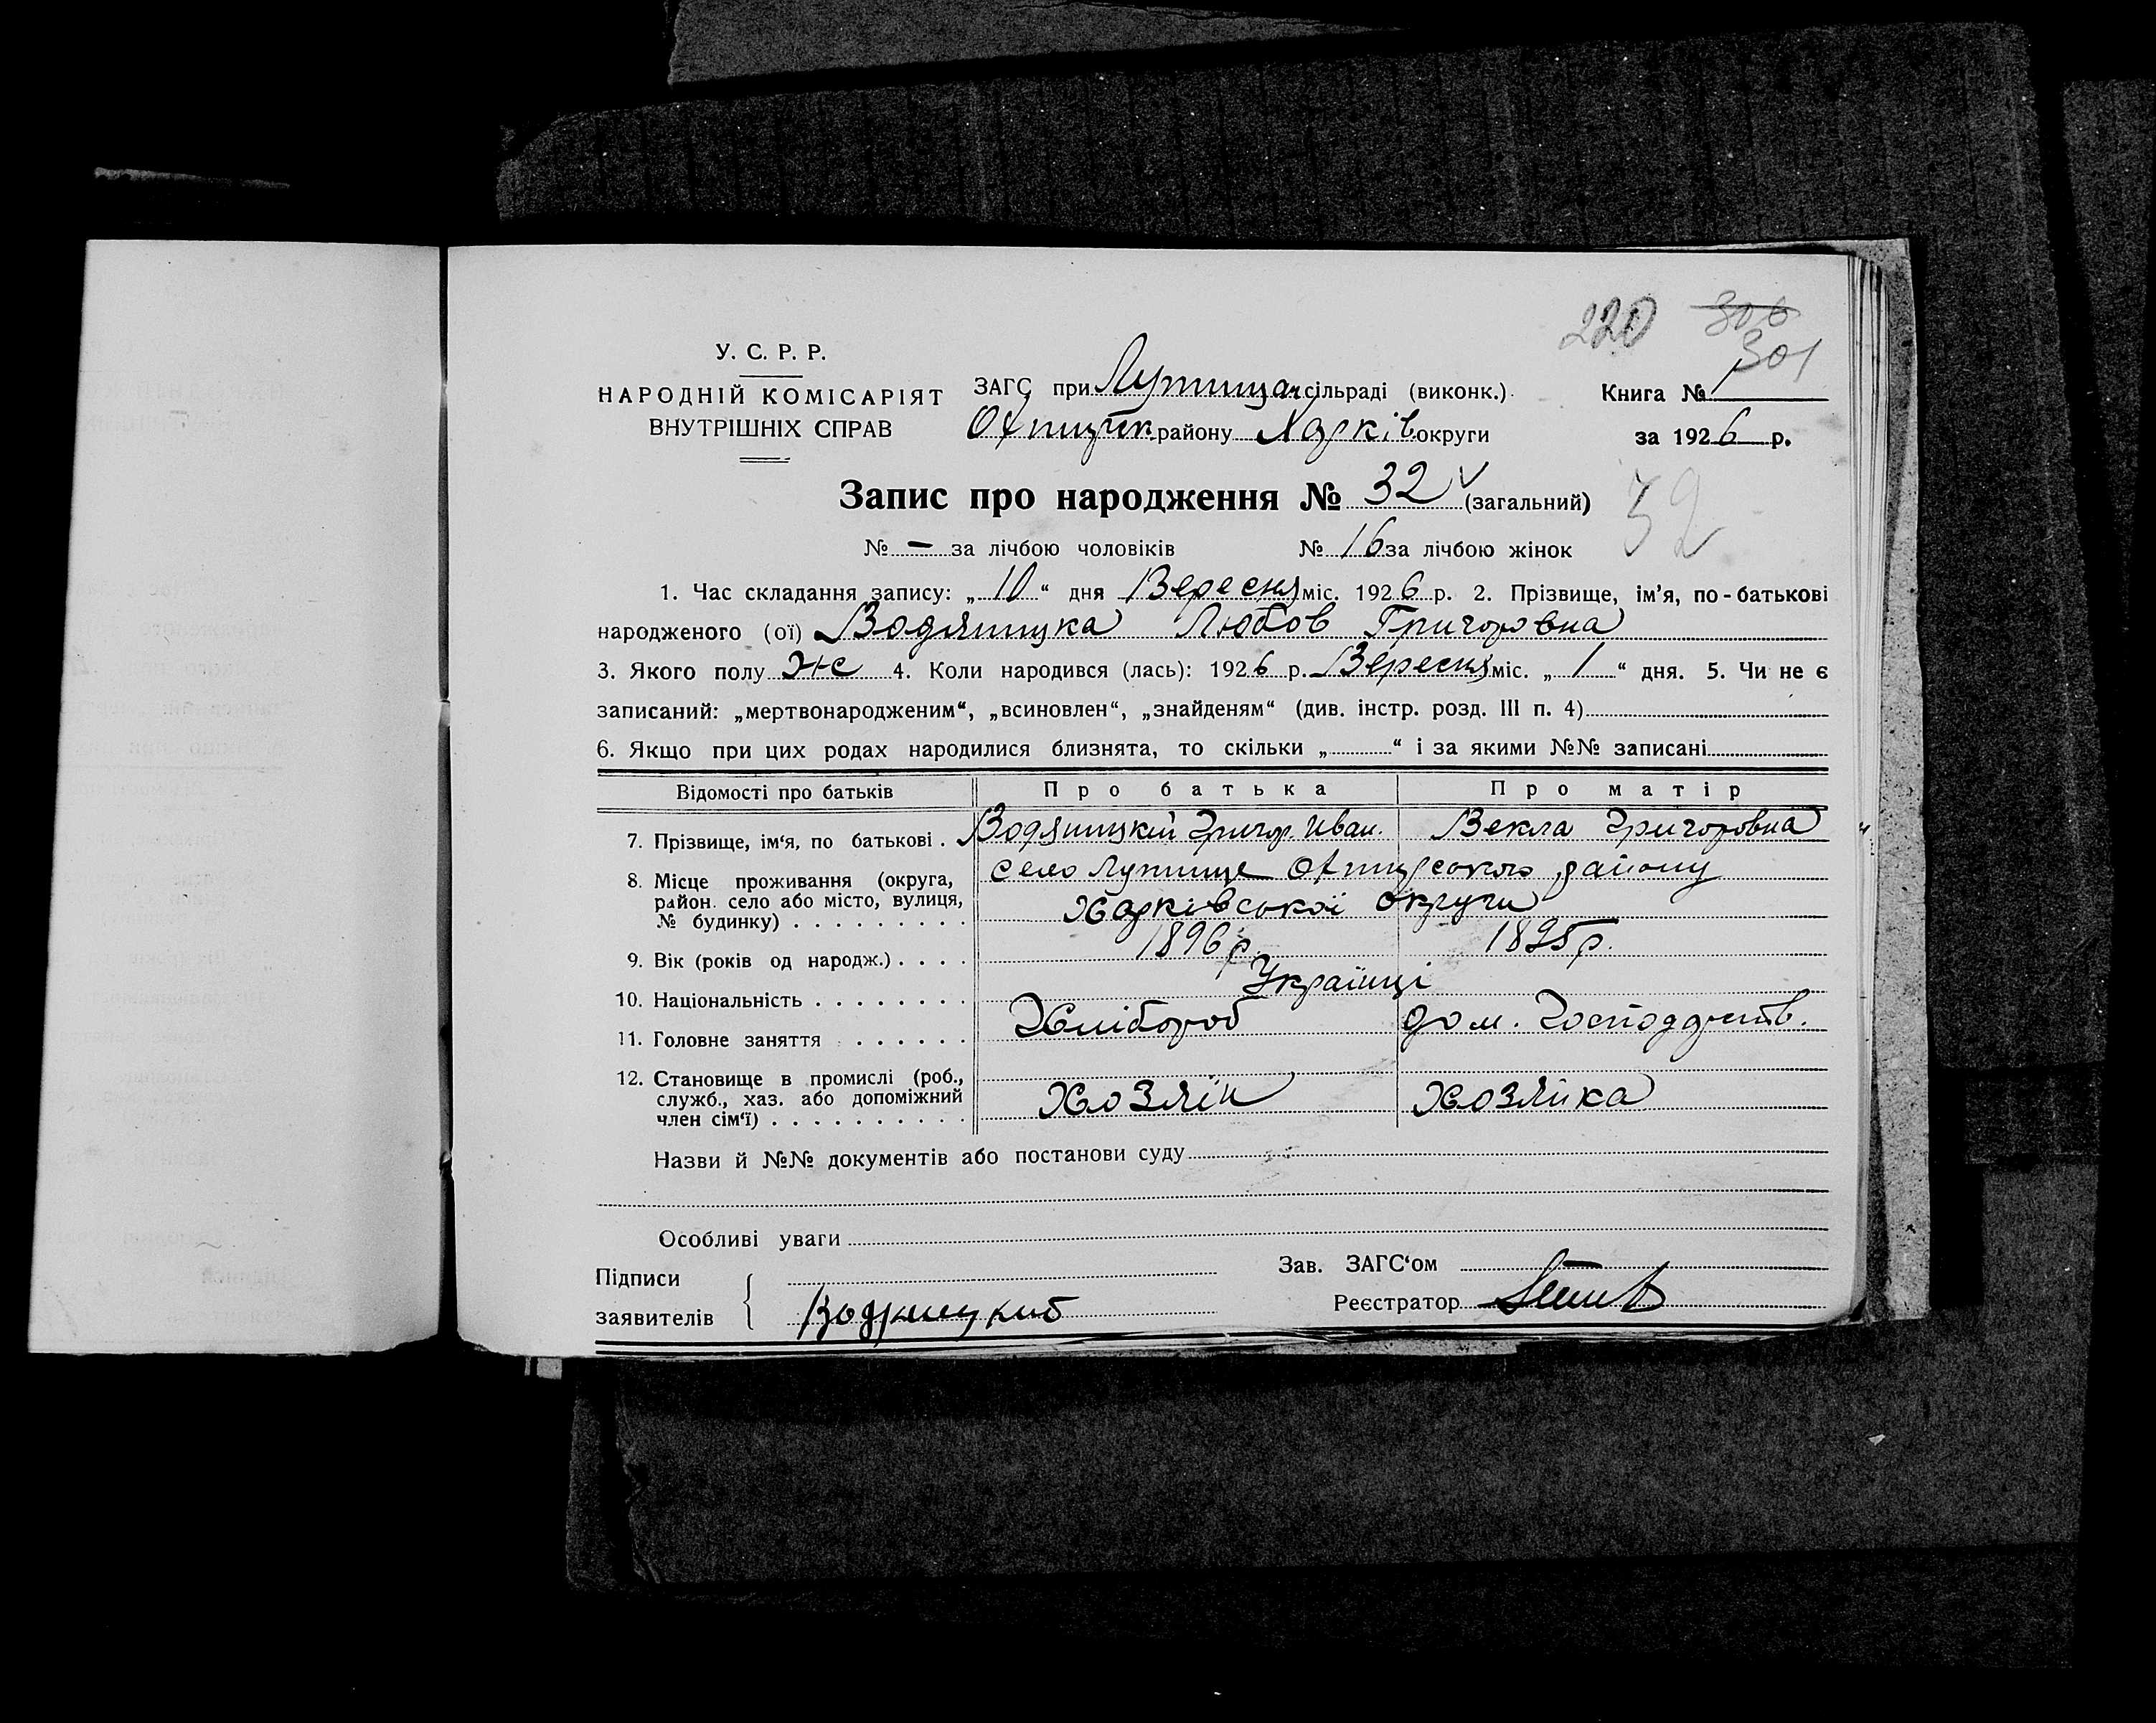 220 306
301
У. С. Р. Р.
НАРОДНІЙ КОМІСАРІЯТ
ВНУТРІШНІХ СПРАВ
ЗАГС при Лутищан сільраді (виконк.).
Охтирськ району Харків округи
Книга № 1
за 1926 р.
Запис про народження № 32 (загальний)
32
№ — за лічбою чоловіків № 16 за лічбою жінок
1. Час складання запису: „ 10 “ дня Вересня міс. 1926 р. 2. Прізвище, ім’я, по-батькові
народженого (ої) Водяницка Любов Григоровна
3. Якого полу Ж 4. Коли народився (лась): 1926 р. Вересня міс. „ 1 “ дня. 5. Чи не є
записаний: „мертвонародженим“, „всиновлен“, „знайденям“ (див. інстр. розд. III п. 4)
6. Якщо при цих родах народилися близнята, то скільки „ “ і за якими №№ записані
Відомості про батьків Про батька Про матір
7. Прізвище, ім‘я, по батькові . Водяницкій Григор. Иван. Векла Григоровна
8. Місце проживання (округа, район. село або місто, вулиця, № будинку) село Лутище Охтирського району
Харківської округи
9. Вік (років од народж.) 1896 р. 1895 р.
10. Національність Українці
11. Головне заняття Хлібороб дом. Господарств.
12. Становище в промислі (роб., служб., хаз. або допоміжний член сім‘ї) Хозяін Хозяйка
Назви й №№ документів або постанови суду
Особливі уваги
Підписи
заявителів Водяницкий
Зав. ЗАГС‘ом
Реєстратор